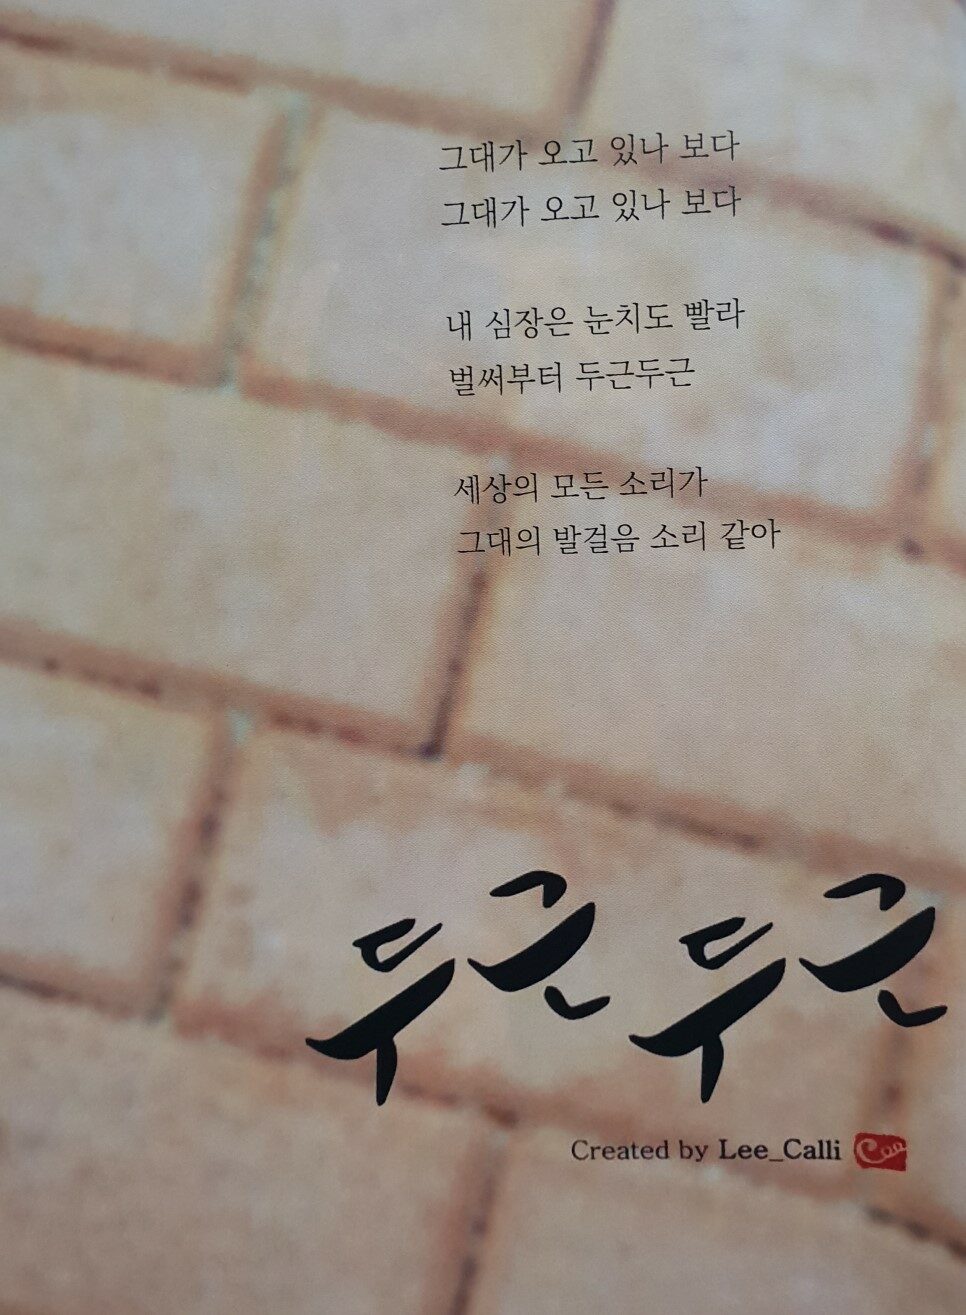 그대가 오고 있나 보다
그대가 오고 있나 보다
내 심장은 눈치도 빨라
벌써부터 두근두근
세상의 모든 소리가
그대의 발걸음 소리 같아
두근두근
Created by Lee_Calli